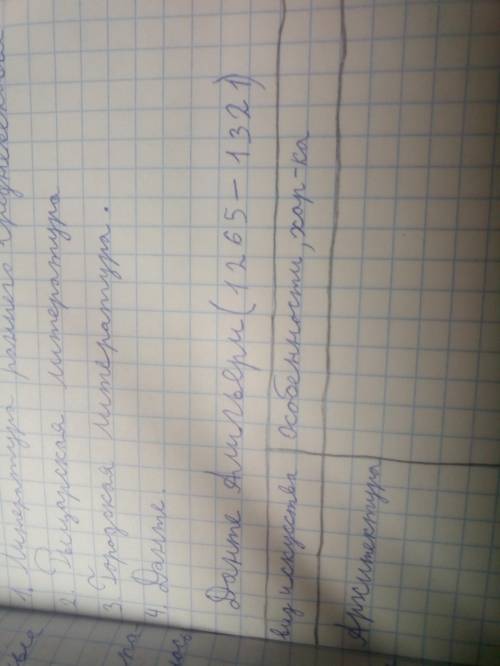 1. Литература раннего средневековья
2. Рыцарская литература
3. Городская литература.
4. Данте.
Данте Алигьери (1265-1321)
вид искусства Особенности, хар-ка
Архитектура